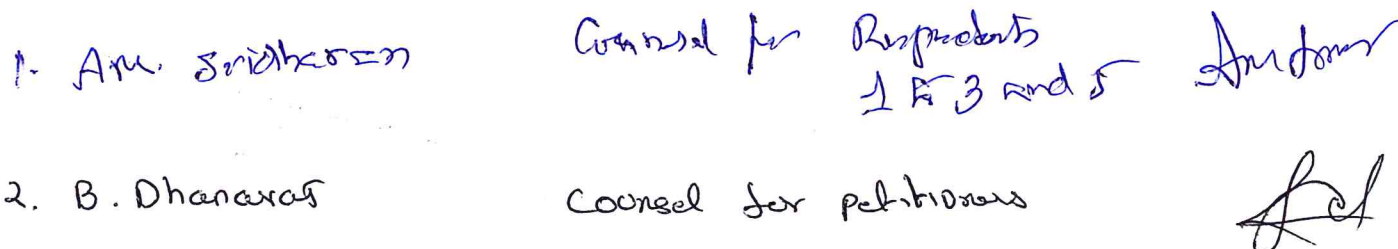 1. AM. Sridharan Counsel for Respondents
1 to 3 and 5
2. B. Dhanaraj Counsel for petitioners